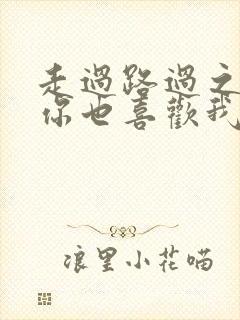 走過路過之
你也喜歡我
浪里小花喵